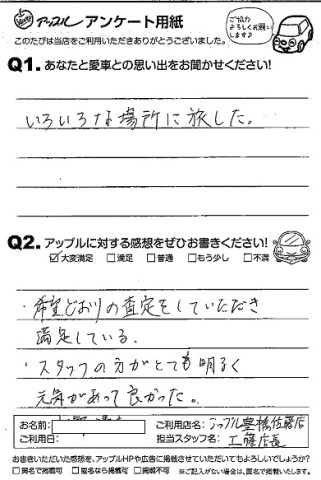 アップル アンケート用紙
このたびは当店をご利用いただきありがとうございました。
ご協力
よろしくお願い
します♪
Q1. あなたと愛車との思い出をお聞かせください!
いろいろな場所に旅した。
Q2. アップルに対する感想をぜひお書きください!
☑大変満足 □満足 □普通 □もう少し □不満
・希望どおりの査定をしていただき
満足している。
・スタッフの方がとても明るく
元気があって良かった。
お名前:
ご利用店名: アップル豊橋佐藤店
ご利用日:
担当スタッフ名: 工藤店長
お書きいただいた感想を、アップルHPや広告に掲載させていただいてもよろしいでしょうか?
□実名で掲載可 □匿名なら掲載可 □掲載不可 ※ご記入がない場合は、匿名で掲載いたします。